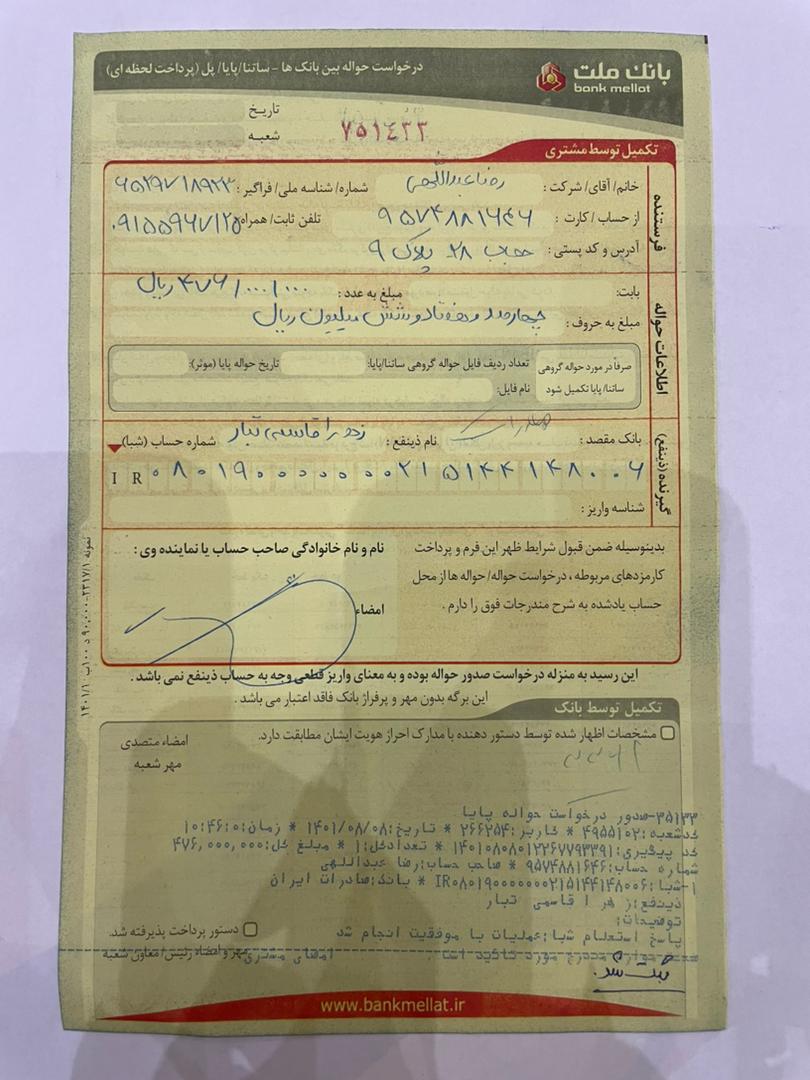 بانک ملت
bank mellat
درخواست حواله بین بانک ها - ساتنا/پایا/ پل (پرداخت لحظه ای)
تاریخ
شعبه
۷۵۱۴۳۳
تکمیل توسط مشتری
فرستنده
خانم/ آقای/ شرکت : رضا عبداللهی شماره/ شناسه ملی/ فراگیر :
از حساب / کارت : ۹۵۷۴۸۸۱۶۴۶ تلفن ثابت/ همراه : ۰۹۱۵۵۹۶۷۱۲۵
آدرس و کد پستی : حجاب ۲۸ پلاک ۹
اطلاعات حواله
بابت: مبلغ به عدد : ۴۷۶/۰۰۰/۰۰۰ ریال
مبلغ به حروف : چهارصد و هفتاد و شش میلیون ریال
صرفاً در مورد حواله گروهی ساتنا/ پایا تکمیل شود
تعداد ردیف فایل حواله گروهی ساتنا/پایا: تاریخ حواله پایا (موثر):
نام فایل:
گیرنده (ذینفع)
بانک مقصد : صادرات نام ذینفع : زهرا قاسمی تبار شماره حساب (شبا)
I R ۰۸۰۱۹۰۰۰۰۰۰۰۰۲۱۵۱۴۴۱۴۸۰۰۶
شناسه واریز :
بدینوسیله ضمن قبول شرایط ظهر این فرم و پرداخت
کارمزدهای مربوطه ، درخواست حواله/ حواله ها از محل
حساب یادشده به شرح مندرجات فوق را دارم .
نام و نام خانوادگی صاحب حساب یا نماینده وی :
امضاء
این رسید به منزله درخواست صدور حواله بوده و به معنای واریز قطعی وجه به حساب ذینفع نمی باشد .
این برگه بدون مهر و پرفراژ بانک فاقد اعتبار می باشد .
تکمیل توسط بانک
مشخصات اظهار شده توسط دستور دهنده با مدارک احراز هویت ایشان مطابقت دارد.
امضاء متصدی
مهر شعبه
۳۵۱۳۳-صدور درخواست حواله پایا
کدشعبه:۴۹۵۵۱۰۲ * کاربر:۲۶۶۲۵۴ * تاریخ:۱۴۰۱/۰۸/۰۸ * زمان:۱۰:۴۶:۰
کد پیگیری:۱۴۰۱۰۸۰۸۰۱۲۲۶۷۷۹۳۳۹۱ * تعدادکل:۱ * مبلغ کل:۴۷۶,۰۰۰,۰۰۰
شماره حساب:۹۵۷۴۸۸۱۶۴۶ * صاحب حساب:رضا عبداللهی
۱-شبا:IR۰۸۰۱۹۰۰۰۰۰۰۰۰۲۱۵۱۴۴۱۴۸۰۰۶ * بانک:صادرات ایران
ذینفع:زهرا قاسمی تبار
توضیحات:
پاسخ استعلام شبا:عملیات با موفقیت انجام شد
دستور پرداخت پذیرفته شد.
مهر و امضاء رئیس/ معاون شعبه
امضای مشتری
ثبت شد.
www.bankmellat.ir